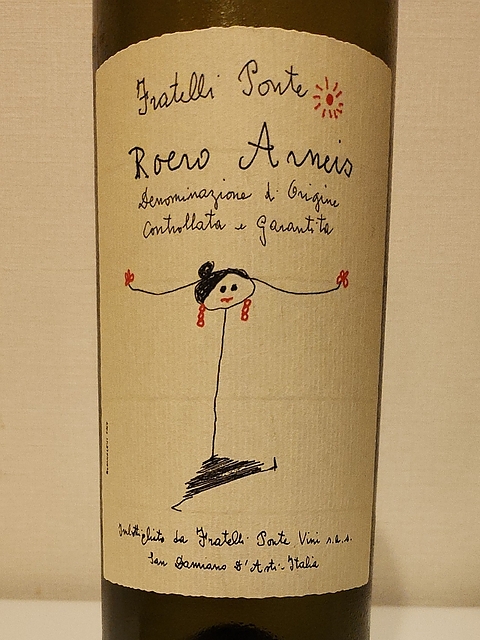 Fratelli Ponte
Roero Arneis
Denominazione di Origine
Controllata e Garantita
Imbottigliato da Fratelli Ponte Vini s.a.s.
San Damiano D'Asti - Italia